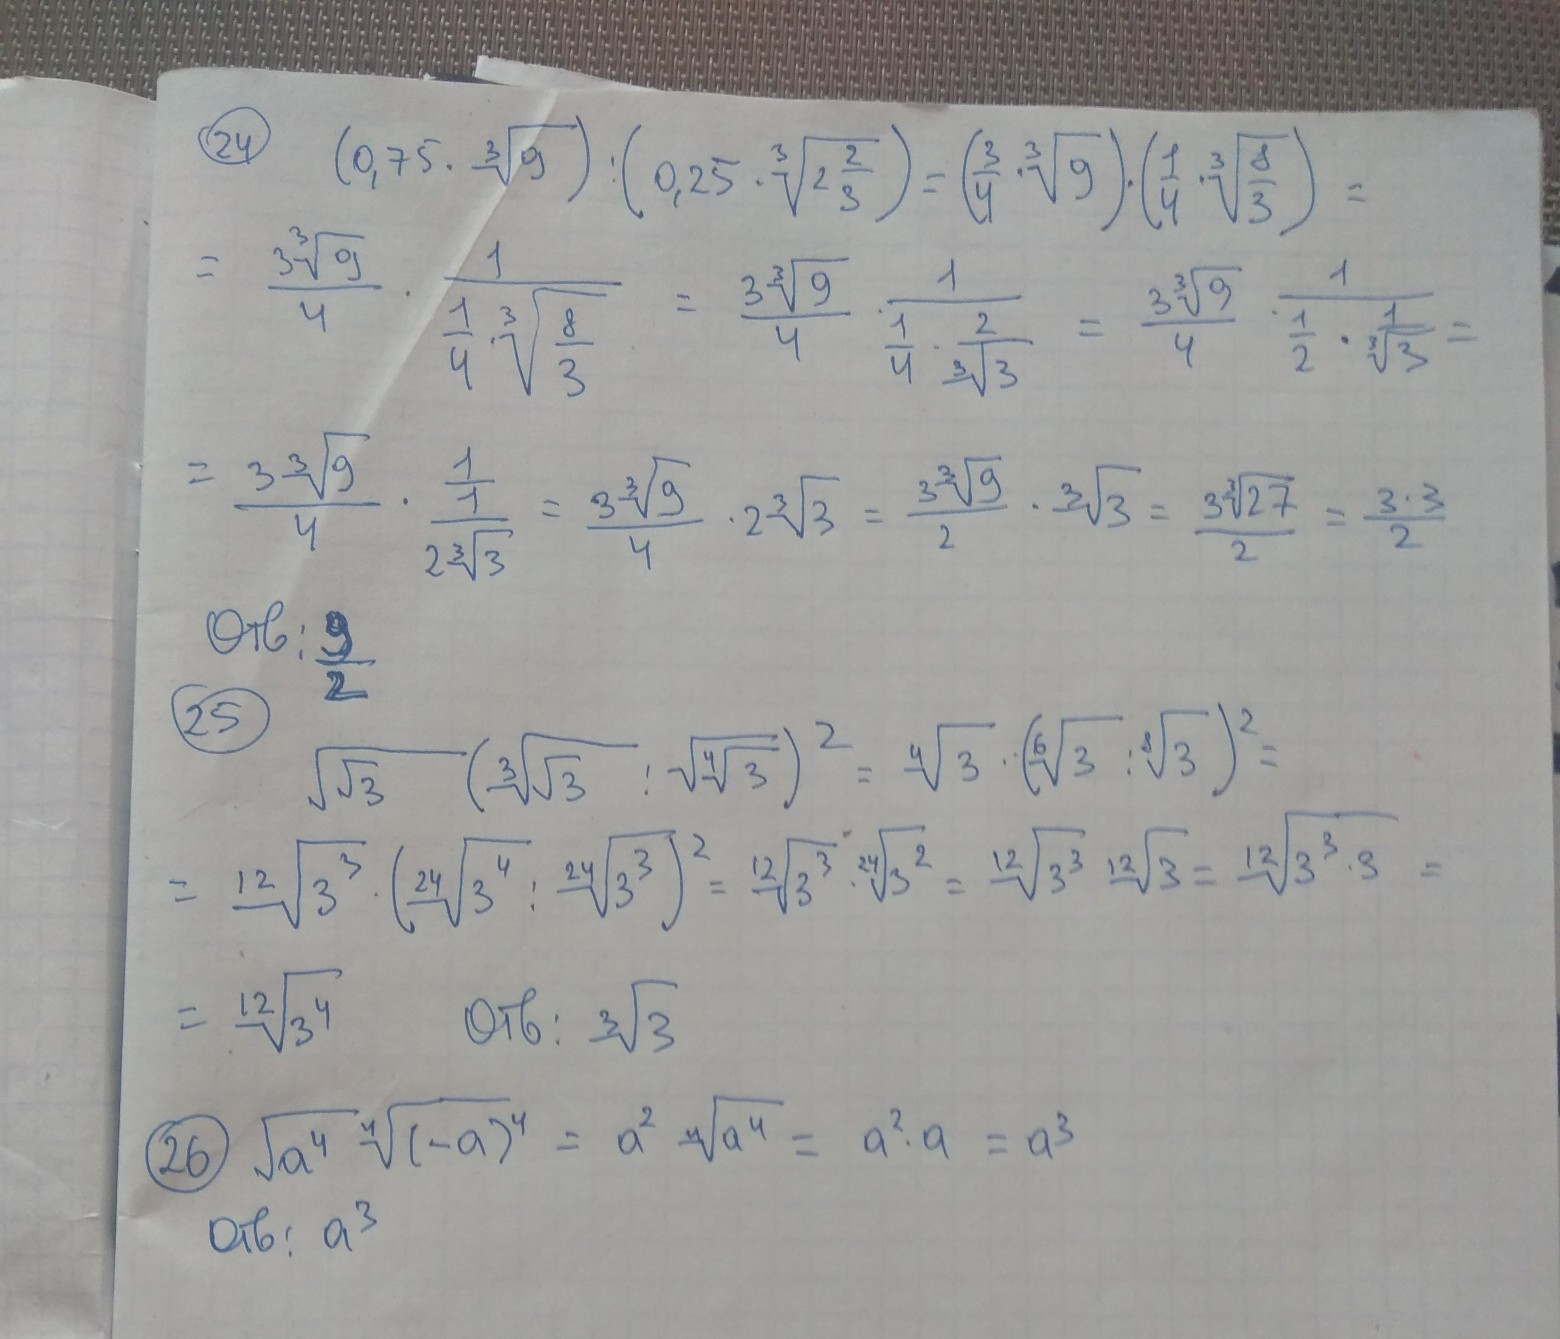 24 (0,75 · ∛9) : (0,25 · ∛(2 2/3)) = (3/4 · ∛9) · (1/4 · ∛(8/3)) =
= 3∛9/4 · 1/(1/4 · ∛(8/3)) = 3∛9/4 · 1/(1/4 · 2/∛3) = 3∛9/4 · 1/(1/2 · 1/∛3) =
= 3∛9/4 · 1/(1/(2∛3)) = 3∛9/4 · 2∛3 = 3∛9/2 · ∛3 = 3∛27/2 = 3·3/2
Отв: 9/2
25
√√3 (∛√3 : √∜3)² = ∜3 · (⁶√3 : ⁸√3)² =
= ¹²√3³ · (²⁴√3⁴ : ²⁴√3³)² = ¹²√3³ · ²⁴√3² = ¹²√3³ ¹²√3 = ¹²√(3³·3) =
= ¹²√3⁴ Отв: ∛3
26 √a⁴ ∜(-a)⁴ = a² ∜a⁴ = a²·a = a³
Отв: a³